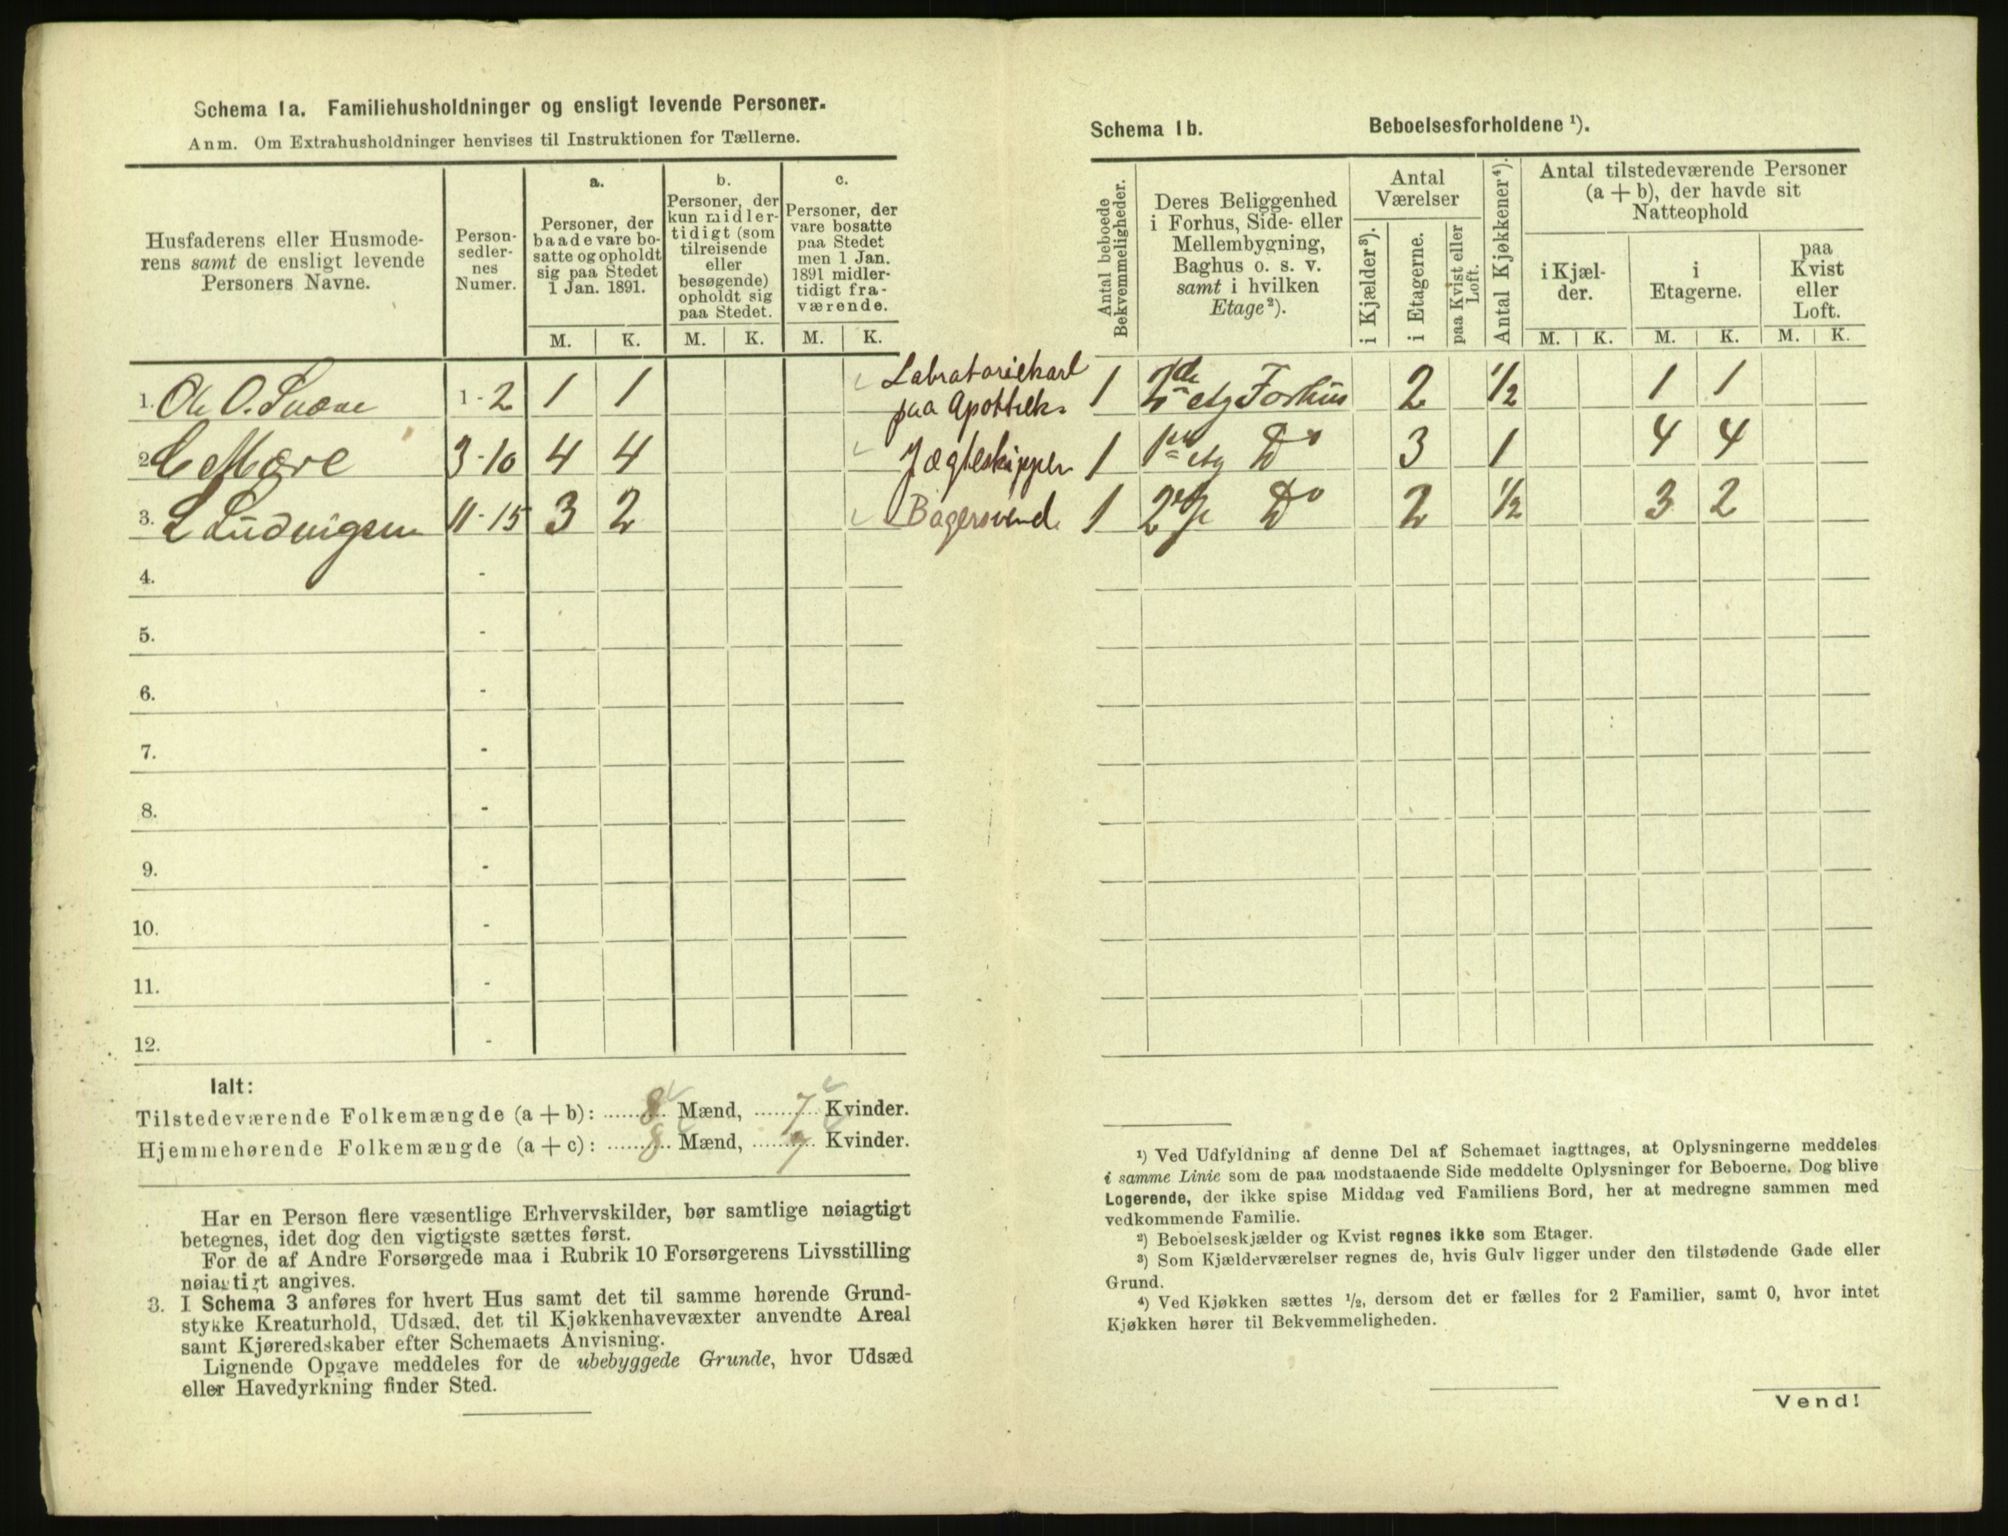 Schema 1a. Familiehusholdninger og ensligt levende Personer.
Anm. Om Extrahusholdninger henvises til Instruktionen for Tællerne.
Husfaderens eller Husmoderens samt de ensligt levende Personers Navne.
Personsedlernes Numer.
a. Personer, der baade vare bosatte og opholdt sig paa Stedet 1 Jan. 1891.
b. Personer, der kun midlertidigt (som tilreisende eller besøgende) opholdt sig paa Stedet.
c. Personer, der vare bosatte paa Stedet men 1 Jan. 1891 midlertidigt fraværende.
M. K. M. K. M. K.
1. Ole O. 1-2 1 1 Labratoriekarl paa Apothek
2. C Møre 3-10 4 4 Jægteskipper
3. L Ludvigsen 11-15 3 2 Bagersvend
4. -
5. -
6. -
7. -
8. -
9. -
10. -
11. -
12. -
Ialt:
Tilstedeværende Folkemængde (a + b): 8 Mænd, 7 Kvinder.
Hjemmehørende Folkemængde (a + c): 8 Mænd, 7 Kvinder.
Har en Person flere væsentlige Erhvervskilder, bør samtlige nøiagtigt
betegnes, idet dog den vigtigste sættes først.
For de af Andre Forsørgede maa i Rubrik 10 Forsørgerens Livsstilling
nøiagtigt angives.
3. I Schema 3 anføres for hvert Hus samt det til samme hørende Grund-
stykke Kreaturhold, Udsæd, det til Kjøkkenhavevæxter anvendte Areal
samt Kjøreredskaber efter Schemaets Anvisning.
Lignende Opgave meddeles for de ubebyggede Grunde, hvor Udsæd
eller Havedyrkning finder Sted.
Schema 1b. Beboelsesforholdene ¹).
Antal beboede Bekvemmeligheder.
Deres Beliggenhed i Forhus, Side- eller Mellembygning, Baghus o. s. v. samt i hvilken Etage²).
Antal Værelser
i Kjælder³).
i Etagerne.
paa Kvist eller Loft.
Antal Kjøkkener⁴).
Antal tilstedeværende Personer (a + b), der havde sit Natteophold
i Kjælder.
i Etagerne.
paa Kvist eller Loft.
M. K. M. K. M. K.
1 2de etg Forhus 2 1/2 1 1
1 1ste etg Do 3 1 4 4
1 2 Do 2 1/2 3 2
¹) Ved Udfyldning af denne Del af Schemaet iagttages, at Oplysningerne meddeles
i samme Linie som de paa modstaaende Side meddelte Oplysninger for Beboerne. Dog blive
Logerende, der ikke spise Middag ved Familiens Bord, her at medregne sammen med
vedkommende Familie.
²) Beboelseskjælder og Kvist regnes ikke som Etager.
³) Som Kjælderværelser regnes de, hvis Gulv ligger under den tilstødende Gade eller
Grund.
⁴) Ved Kjøkken sættes ¹/₂, dersom det er fælles for 2 Familier, samt 0, hvor intet
Kjøkken hører til Bekvemmeligheden.
Vend!